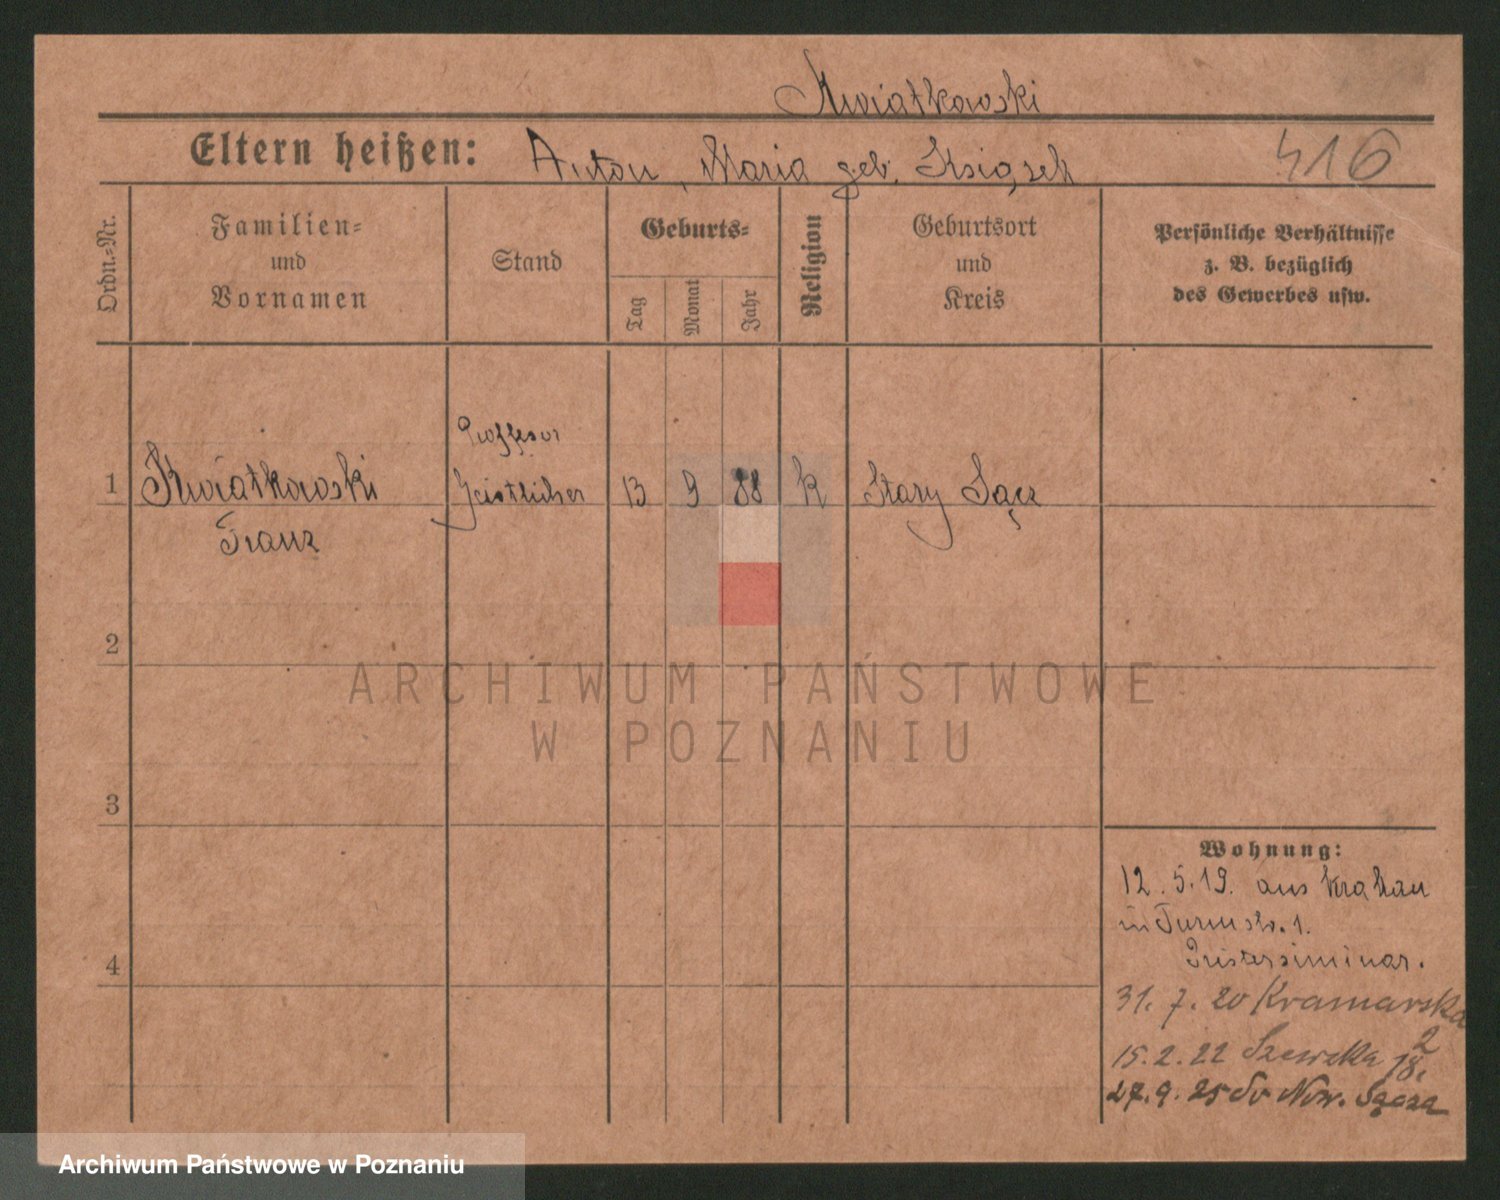 Kwiatkowski
Eltern heißen: Anton, Maria geb. Książek
416
Ordn.-Nr.
Familien-
und
Vornamen
Stand
Geburts-
Tag
Monat
Jahr
Religion
Geburtsort
und
Kreis
Persönliche Verhältnisse
z. B. bezüglich
des Gewerbes usw.
Proffesor
1 Kwiatkowski Geistlicher 13 9 88 K Stary Sącz
Franz
2
ARCHIWUM PAŃSTWOWE
W POZNANIU
3
Wohnung:
12.5.19. aus Krakau
in Turmstr. 1.
4
31.7.20 Kramarska
2
15.2.22 Szewska 18.
27.9.25 do Now. Sącza
Archiwum Państwowe w Poznaniu